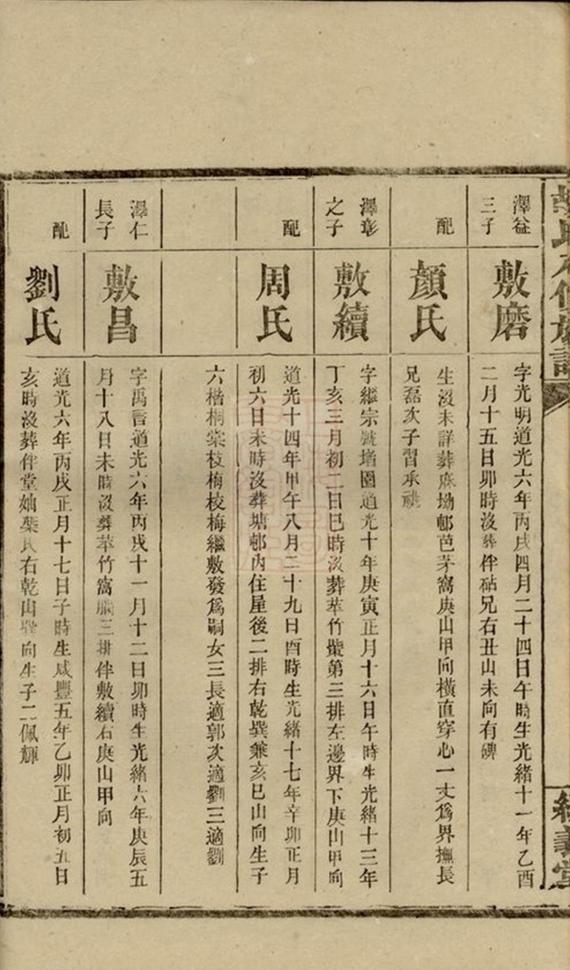 氏六修族譜
澤益
三子
敷磨
字光明道光六年丙戌四月二十四日午時生光緒十一年乙酉
二月十五日卯時沒葬伴砧兄右丑山未向有碑
配
顏氏
生沒未詳葬麻坳邨芭茅窩庚山甲向橫直穿心一丈爲界撫長
兄磊次子習承祧
澤彰
之子
敷續
字繼宗號增園道光十年庚寅正月十六日午時生光緒十三年
丁亥三月初二日巳時沒葬萃竹第三排左邊界下庚山甲向
配
周氏
道光十四年甲午八月二十九日酉時生光緒十七年辛卯正月
初六日未時沒葬塘邨內住屋後二排右乾巽兼亥巳山向生子
六楷桐棠枝梅梅繼敷發爲嗣女三長適郭次適劉三適劉
澤仁
長子
敷昌
字禹言道光六年丙戌十一月十二日卯時生光緒六年庚辰五
月十八日未時沒葬萃竹窩三排伴敷續右庚山甲向
配
劉氏
道光六年丙戌正月十七日子時生咸豐五年乙卯正月初五日
亥時沒葬伴堂妯葉氏右乾山巽向生子二佩輝
義堂